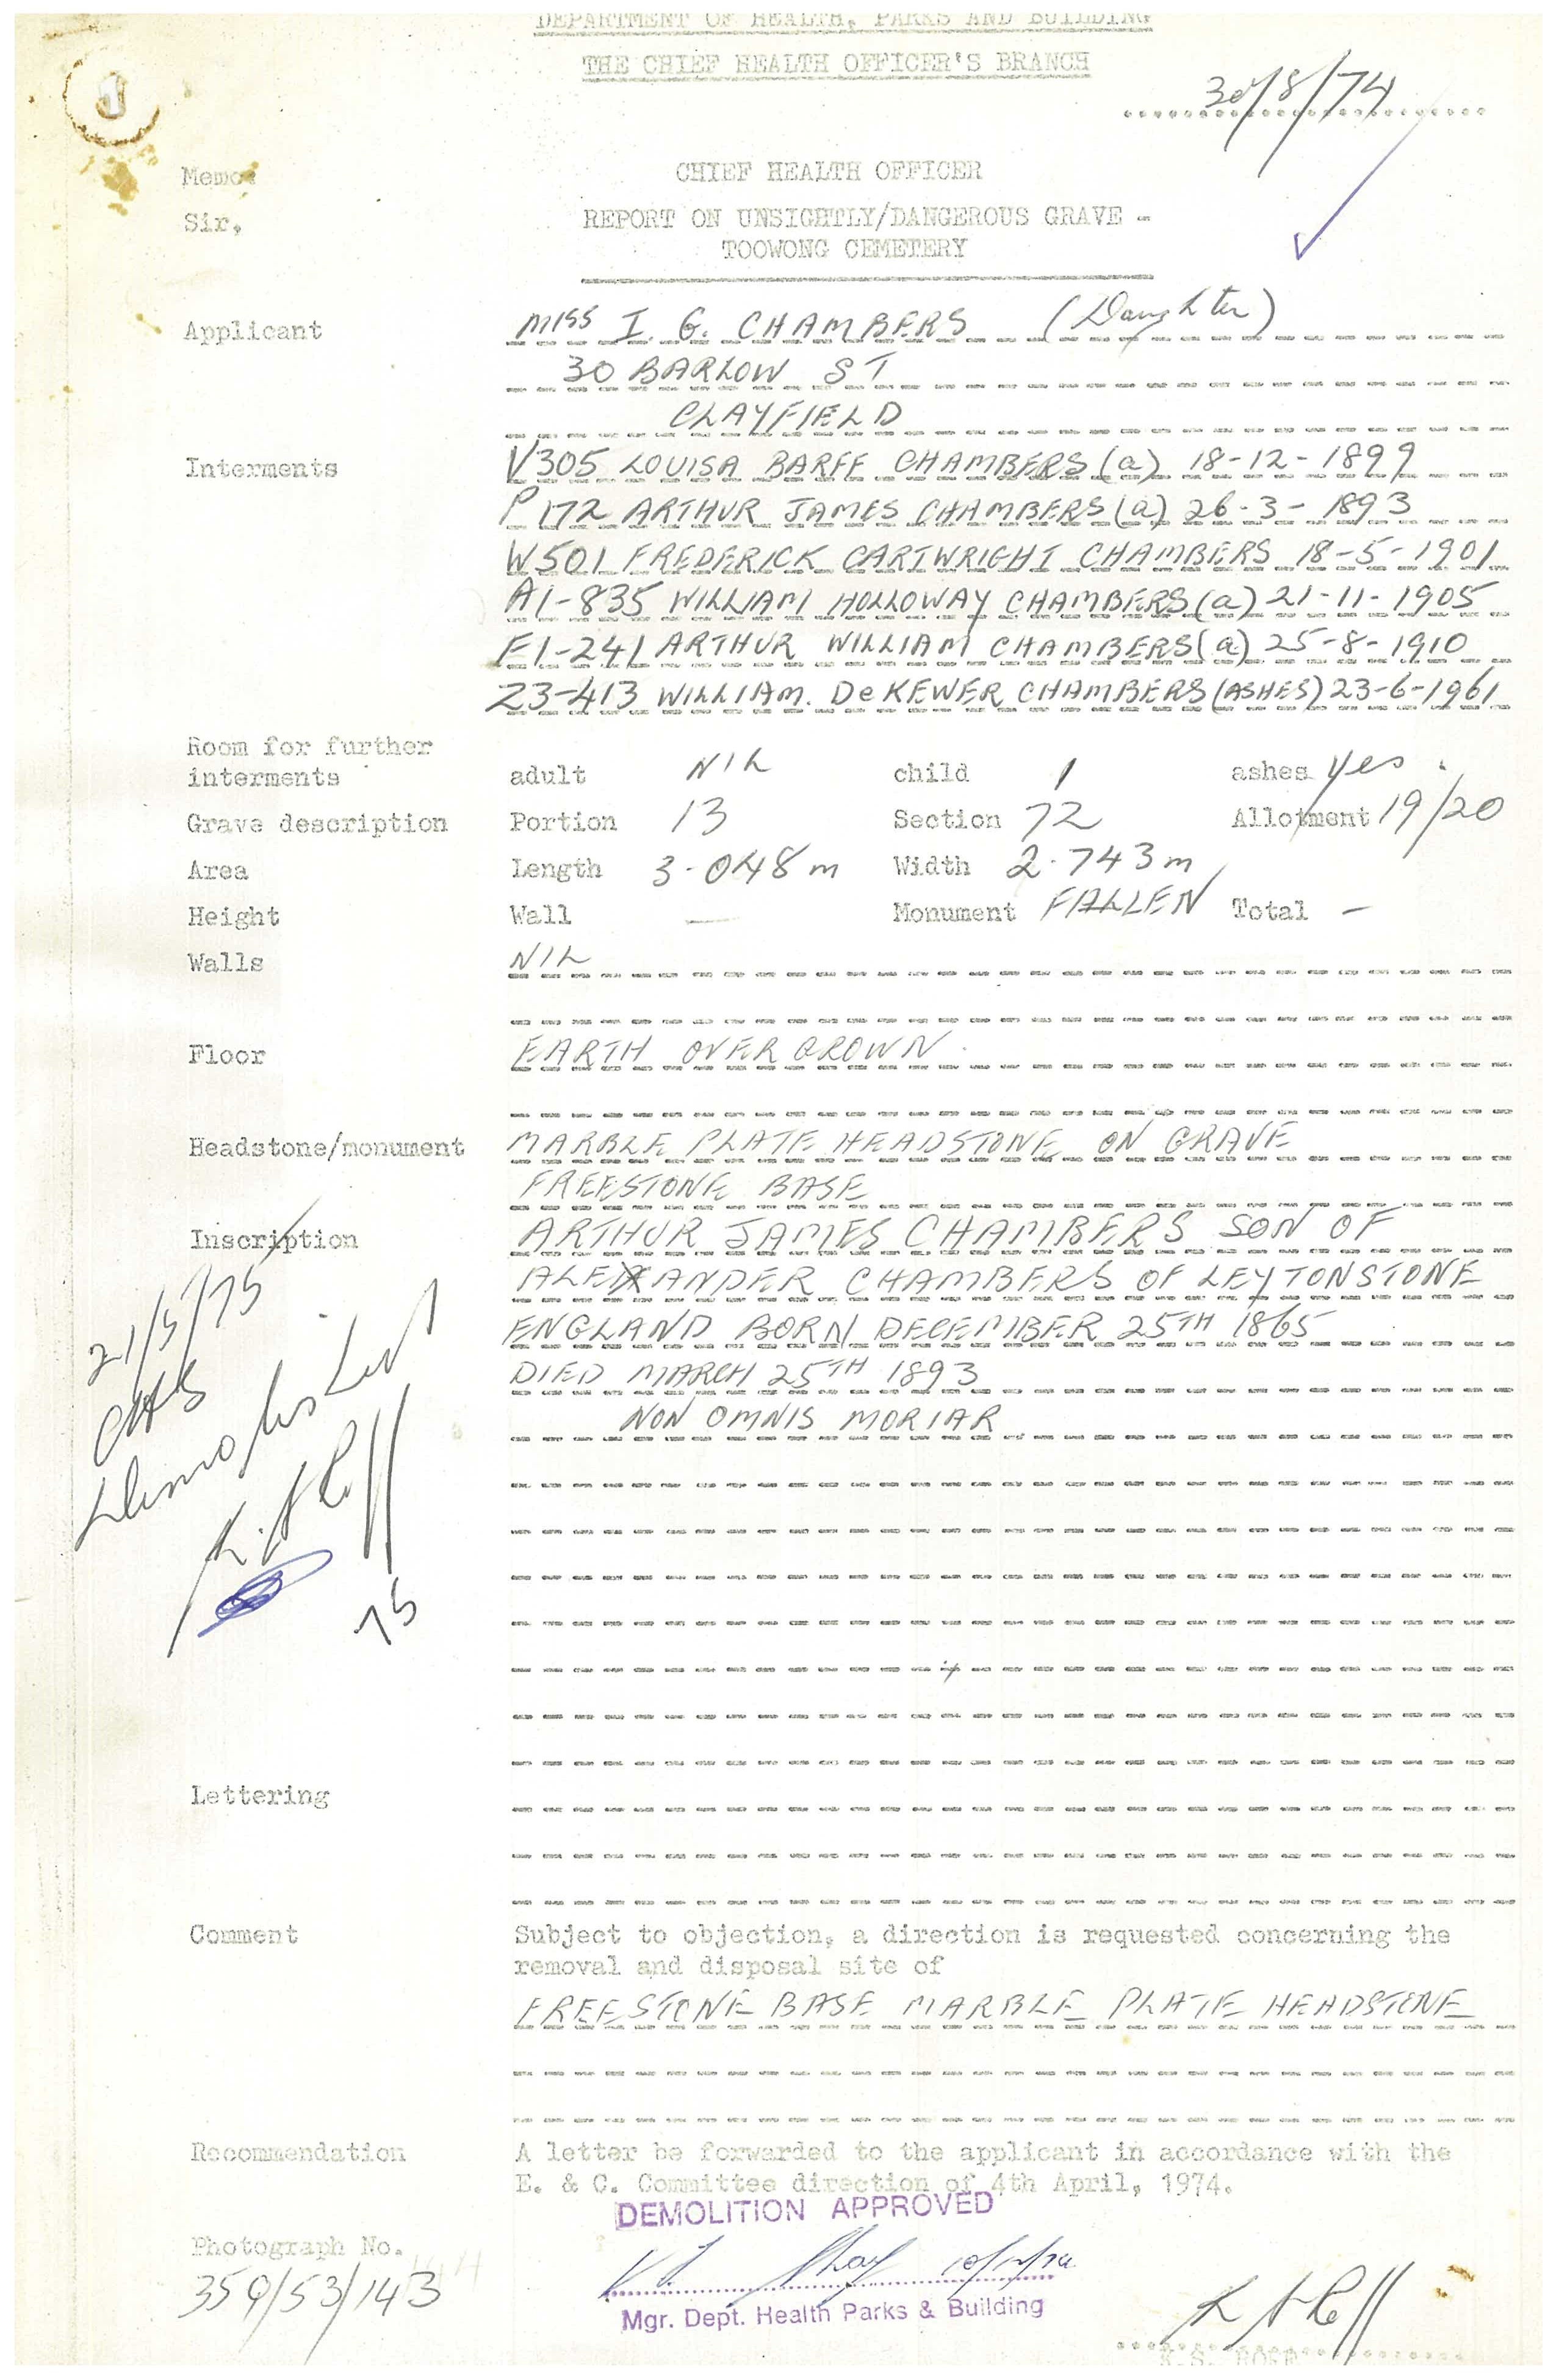 DEPARTMENT OF HEALTH, PARKS AND BUILDING
THE CHIEF HEALTH OFFICER'S BRANCH
30/8/74
Memo.
CHIEF HEALTH OFFICER
Sir,
REPORT ON UNSIGHTLY/DANGEROUS GRAVE -
TOOWONG CEMETERY
Applicant MISS I. G. CHAMBERS (Daughter)
30 BARLOW ST
CLAYFIELD
Interments V305 LOUISA BARFF CHAMBERS (a) 18-12-1899
P172 ARTHUR JAMES CHAMBERS (a) 26-3-1893
W501 FREDERICK CARTWRIGHT CHAMBERS 18-5-1901
A1-835 WILLIAM HOLLOWAY CHAMBERS (a) 21-11-1905
F1-241 ARTHUR WILLIAM CHAMBERS (a) 25-8-1910
Z3-413 WILLIAM. DeKEWER CHAMBERS (ASHES) 23-6-1961
Room for further
interments adult NIL child 1 ashes yes.
Grave description Portion 13 Section 72 Allotment 19/20
Area Length 3.048m Width 2.743m
Height Wall — Monument FALLEN Total —
Walls NIL
Floor EARTH OVERGROWN.
Headstone/monument MARBLE PLATE HEADSTONE ON GRAVE
FREESTONE BASE
Inscription ARTHUR JAMES CHAMBERS SON OF
ALEXANDER CHAMBERS OF LEYTONSTONE
ENGLAND BORN DECEMBER 25TH 1865
DIED MARCH 25TH 1893
NON OMNIS MORIAR
21/5/75
75
Lettering
Comment Subject to objection, a direction is requested concerning the
removal and disposal site of
FREESTONE BASE MARBLE PLATE HEADSTONE
Recommendation A letter be forwarded to the applicant in accordance with the
E. & C. Committee direction of 4th April, 1974.
DEMOLITION APPROVED
Photograph No.
359/53/143
Mgr. Dept. Health Parks & Building